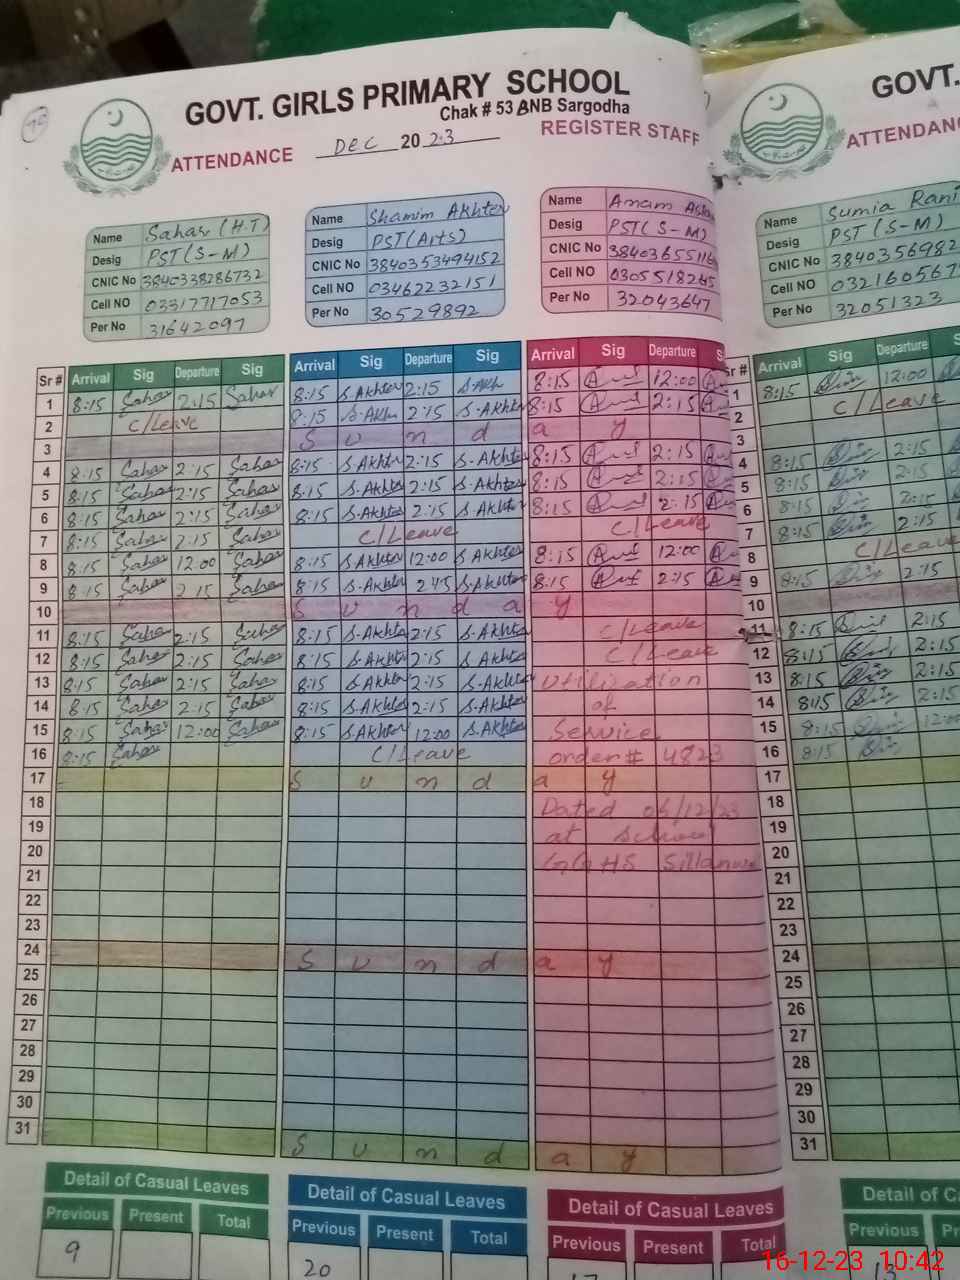 GOVT. GIRLS PRIMARY SCHOOL
Chak # 53 ANB Sargodha
ATTENDANCE DEC 2023 REGISTER STAFF
Name Sahar (H.T)
Desig PST(S-M)
CNIC No 3840338286732
Cell NO 03317717053
Per No 31642097
Name Shamim Akhter
Desig PST(Arts)
CNIC No 3840353494152
Cell NO 03462232151
Per No 30529892
Name Anam
Desig PST(S-M)
CNIC No
Cell NO
Per No 32043647
GOVT.
ATTENDANC
Name Sumia Rani
Desig PST(S-M)
CNIC No 384035698
Cell NO 032160567
Per No 32051323
Sr # Arrival Sig Departure Sig Arrival Sig Departure Sig Arrival Sig Departure S Sr # Arrival Sig Departure S
1 8:15 Sahar 2:15 Sahar 8:15 S.Akhter 2:15 S.Akh 8:15 12:00 1 8:15 12:00
2 C/Leave 8:15 S.Akh 2:15 S.Akhter 8:15 2:15 2 C/Leave
3 S u n d a y 3
4 8:15 Sahar 2:15 Sahar 8:15 S.Akhter 2:15 S.Akhter 8:15 2:15 4 8:15 2:15
5 8:15 Sahar 2:15 Sahar 8:15 S.Akhter 2:15 S.Akhter 8:15 2:15 5 8:15 2:15
6 8:15 Sahar 2:15 Sahar 8:15 S.Akhter 2:15 S.Akhter 8:15 2:15 6 8:15 2:15
7 8:15 Sahar 2:15 Sahar C/Leave C/Leave 7 8:15 2:15
8 8:15 Sahar 12:00 Sahar 8:15 S.Akhter 12:00 S.Akhter 8:15 12:00 8 C/Leave
9 8:15 Sahar 2:15 Sahar 8:15 S.Akhter 2:45 S.Akhter 8:15 2:15 9 8:15 2:15
10 S u n d a y 10
11 8:15 Sahar 2:15 Sahar 8:15 S.Akhter 2:15 S.Akhter C/Leave 11 8:15 2:15
12 8:15 Sahar 2:15 Sahar 8:15 S.Akhter 2:15 S.Akhter C/Leave 12 8:15 2:15
13 8:15 Sahar 2:15 Sahar 8:15 S.Akhter 2:15 S.Akhter Utilization 13 8:15 2:15
14 8:15 Sahar 2:15 Sahar 8:15 S.Akhter 2:15 S.Akhter of 14 8:15 2:15
15 8:15 Sahar 12:00 Sahar 8:15 S.Akhter 12:00 S.Akhter Service 15 8:15 12:00
16 8:15 Sahar C/Leave order# 4823 16 8:15
17 S u n d a y 17
18 Dated 06/12/23 18
19 at school 19
20 GGHS 20
21 21
22 22
23 23
24 S u n d a y 24
25 25
26 26
27 27
28 28
29 29
30 30
31 S u n d a y 31
Detail of Casual Leaves Detail of Casual Leaves Detail of Casual Leaves Detail of C
Previous Present Total Previous Present Total Previous Present Total Previous Pr
9 20 17 13
16-12-23 10:42